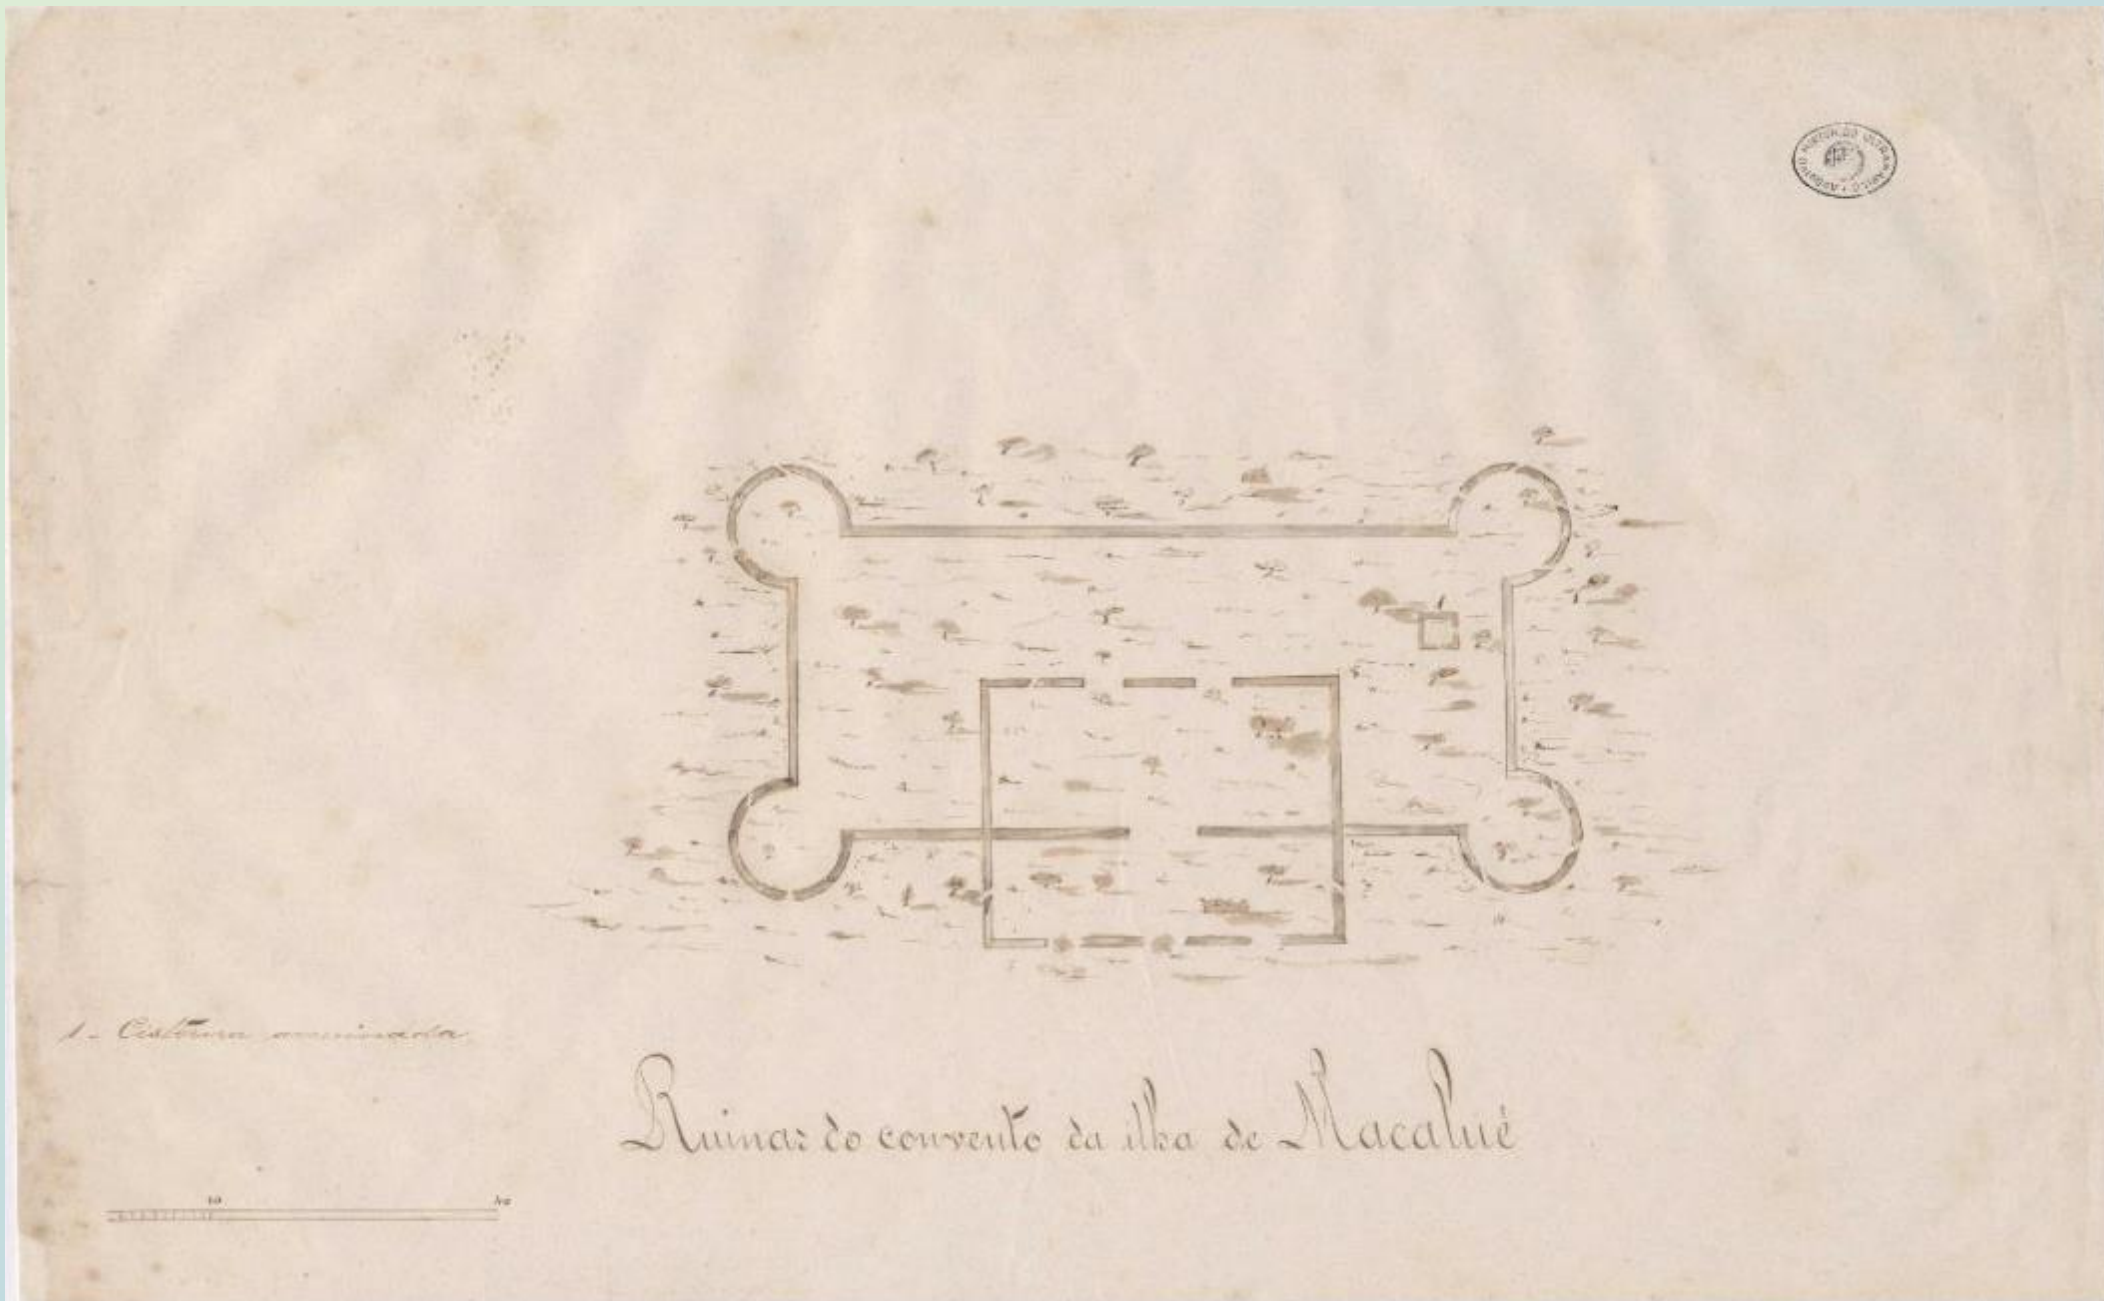 ARQUIVO HISTÓRICO ULTRAMARINO
1
1 - Cisterna arruinada
Ruinas do convento da ilha de Macalué
10 40